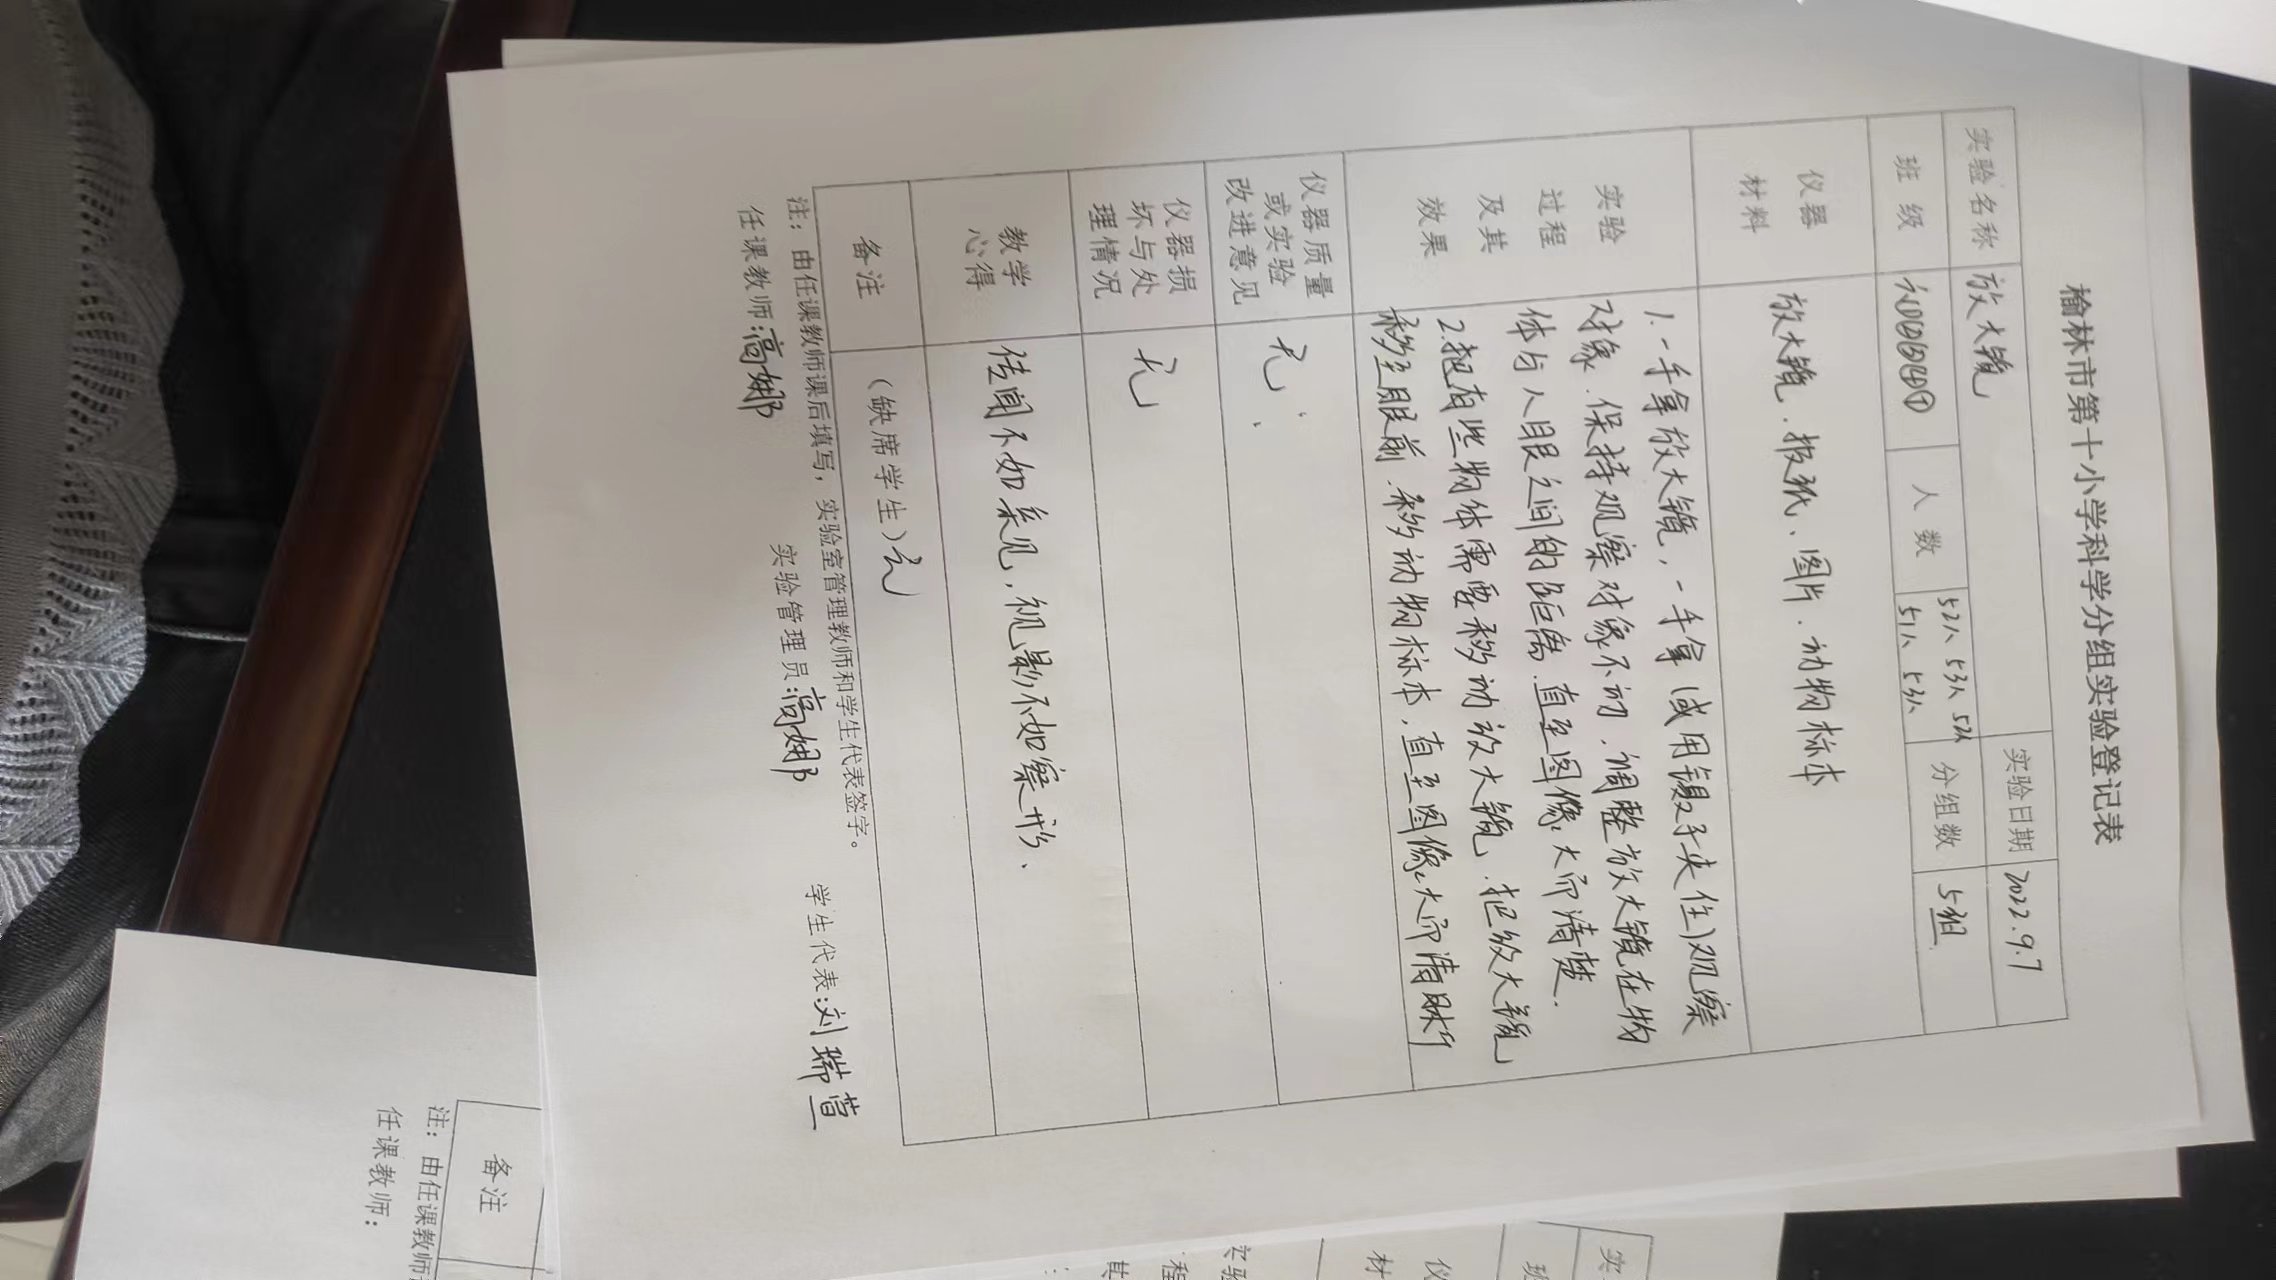 榆林市第十小学科学分组实验登记表
实验名称 放大镜 实验日期 2022.9.7
班级 六①②⑤④⑦ 人数 52人 53人 52人 51人 53人 分组数 5组
仪器
材料
放大镜、报纸、图片、动物标本
实验
过程
及其
效果
1.一手拿放大镜,一手拿(或用镊子夹住)观察
对象.保持观察对象不动.调整放大镜在物
体与人眼之间的距离.直至图像大而清楚.
2.把有些物体需要移动放大镜.把放大镜
移至眼前.移动物标本.直至图像大而清晰
仪器质量
或实验
改进意见
无.
仪器损
坏与处
理情况
无
教学
心得
传闻不如亲见,视影不如察形.
备注 (缺席学生)无
注:由任课教师课后填写,实验室管理教师和学生代表签字。
任课教师:高娜 实验管理员:高娜 学生代表:刘瑞萱
备注
注:由任课教师
任课教师:
实
班
仪
材
实验
程
其